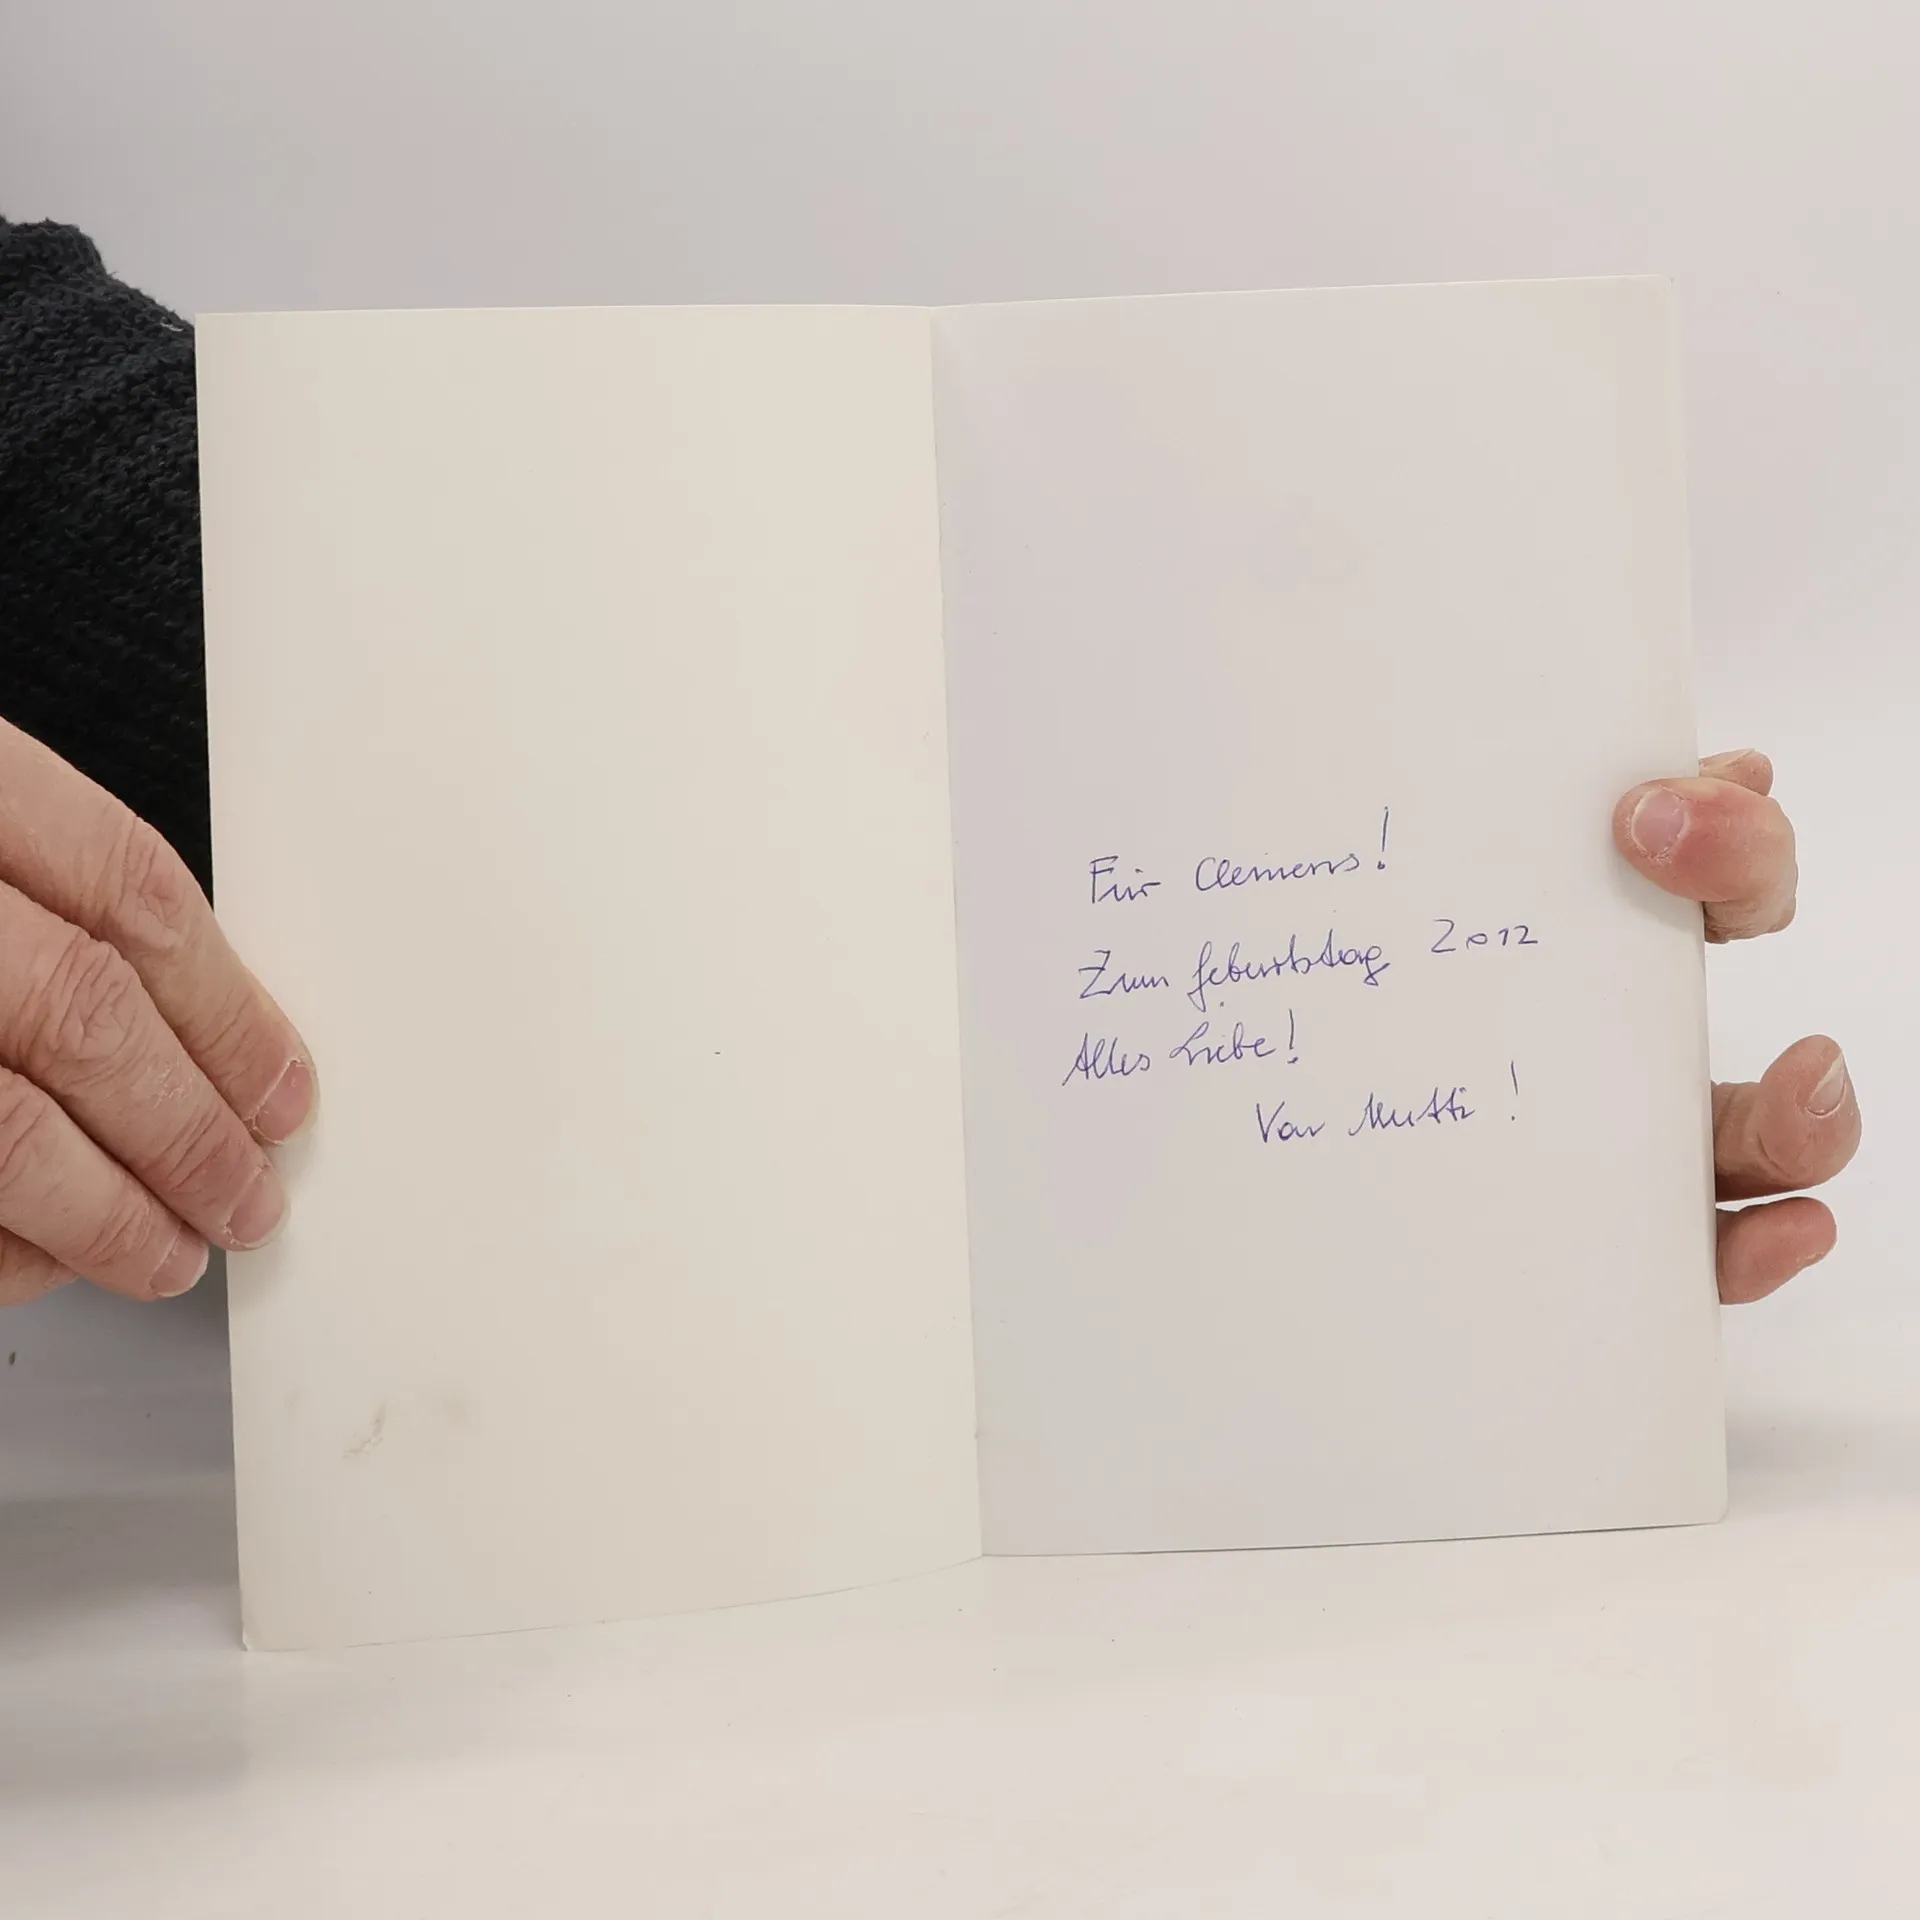 Für Clemens!
Zum Geburtstag 2012
Alles Liebe!
Von Mutti!